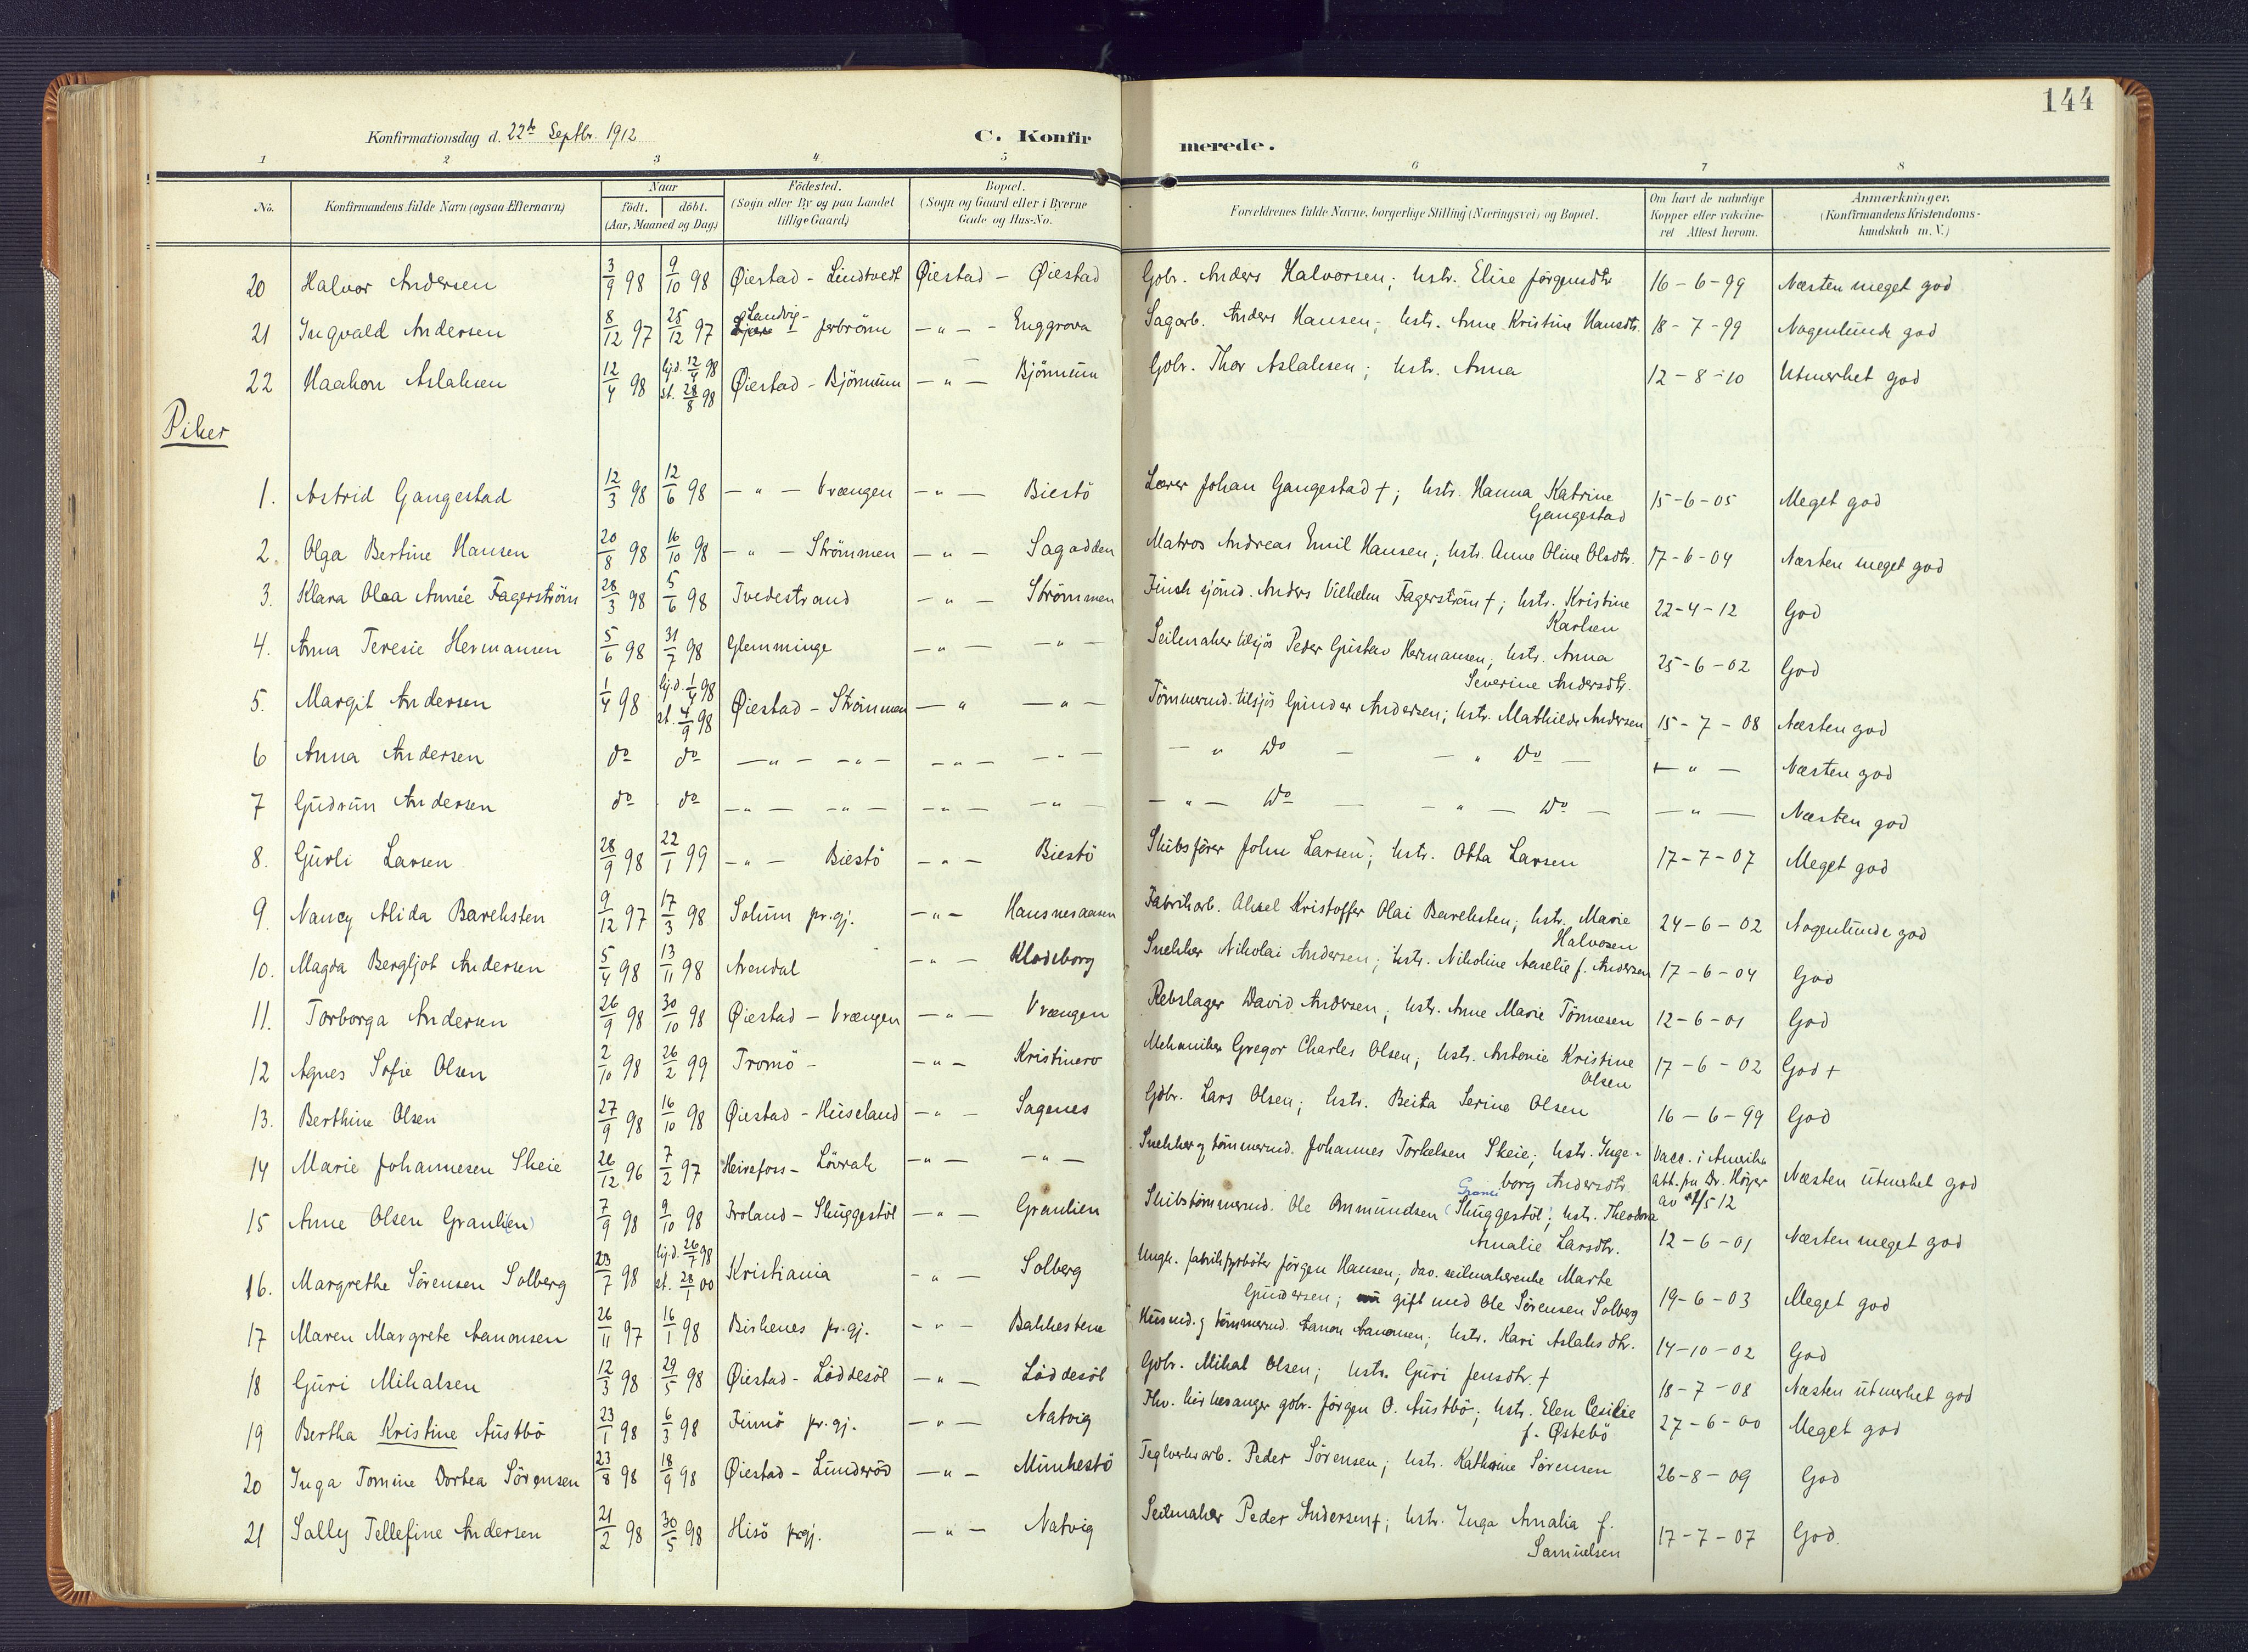 144
Konfirmationsdag d. 22de Septbr. 1912
C. Konfirmerede.
1 2 3 4 5 6 7 8
No. Konfirmandens fulde Navn (ogsaa Efternavn) Naar födt. döbt. (Aar, Maaned og Dag) Födested. (Sogn eller By og paa Landet tillige Gaard) Bopæl. (Sogn og Gaard eller i Byerne Gade og Hus-No. Forældrenes fulde Navne, borgerlige Stilling (Næringsvei) og Bopæl. Om havt de naturlige Kopper eller vakcineret Attest herom. Anmærkninger. (Konfirmandens Kristendomskundskab m. V.)
20 Halvor Andersen 3/9 98 9/10 98 Øiestad - Lindtvedt Øiestad - Øiestad Gbr. Anders Halvorsen; hstr. Elise Jörgensdtr 16-6-99 Næsten meget god
21 Ingvald Andersen 8/12 97 25/12 97 Landvig - -"- - Enggrova Sagarb. Anders Hansen; hstr. Anne Kristine Hansdtr. 18-7-99 Nogenlunde god
22 Haakon Aslaksen 12/4 98 hj.d. 12/4 98 st. 28/8 98 Øiestad - Björnum -"- Björnum Gbr. Thor Aslaksen; hstr. Anna 12-8-10 Utmerket god
Piker
1. Astrid Gangestad 12/3 98 12/6 98 -"- Vrængen -"- Biestö Lærer Johan Gangestad †; hstr. Hanna Katrine Gangestad 15-6-05 Meget god
2. Olga Bertine Hansen 20/8 98 16/10 98 -"- Strömmen -"- Sagodden Matros Andreas Emil Hansen; hstr. Anne Oline Olsdtr. 17-6-04 Næsten meget god
3. Klara Olea Année Fagerström 28/3 98 5/6 98 Tvedestrand -"- Strömmen Finsk sjömd. Anders Vilhelm Fagerström †; hstr. Kristine Karlsen 22-4-12 God
4. Anna Teresie Hermansen 5/6 98 31/7 98 Glemminge -"- -"- Seilmaker tilsjös Peder Gustav Hermansen; hstr. Anna Severine Andersdtr. 25-6-02 God
5. Margit Andersen 1/4 98 hj.d. 1/4 98 st. 4/9 98 Øiestad - Strömmen -"- -"- Tömmermd. tilsjös Gunder Andersen; hstr. Mathilde Andersen 15-7-08 Næsten god
6 Anna Andersen do do -"- -"- -"- -"- -"- Do - -"- Do - -"- Næsten god
7 Gudrun Andersen do do -"- -"- -"- -"- -"- Do - -"- Do - -"- Næsten god
8. Gurli Larsen 28/9 98 22/1 99 -"- Biestö -"- Biestö Skibsförer John Larsen; hstr. Otta Larsen 17-7-07 Meget god
9. Nancy Alida Bareksten 9/12 97 17/3 98 Solum pr.gj. -"- Hausnesaasen Fabrikarb. Aksel Kristoffer Olai Bareksten; hstr. Marie Halvosen 24-6-02 Nogenlunde god
10. Magda Bergljot Andersen 5/4 98 13/11 98 Arendal -"- Klodeborg Snekker Nikolai Andersen; hstr. Nikoline Aurelie f. Andersen 17-6-04 God
11. Torborga Andersen 26/9 98 30/10 98 Øiestad - Vrængen -"- Vrængen Rebslager David Andersen; hstr. Anne Marie Tönnesen 12-6-01 God
12 Agnes Sofie Olsen 2/10 98 26/2 99 Tromö - -"- Kristinero Mekaniker Gregor Charles Olsen; hstr. Antonie Kristine Olsen 17-6-02 God +
13. Berthine Olsen 27/9 98 16/10 98 Øiestad - Huseland -"- Sagenes Gbr. Lars Olsen; hstr. Berta Serine Olsen 16-6-99 God
14 Marie Johannesen Skeie 26/12 96 7/2 97 Heirefoss - Lövrak -"- -"- Snekker og tömmermd. Johannes Torkelsen Skeie; hstr. Ingeborg Andersdtr. Vacc. i Amerika att. fra Dr. Höyer av 21/5 12 Næsten utmerket god
15 Anne Olsen Granli(en) 7/9 98 9/10 98 Froland - Skuggestöl -"- Granlien Skibstömmermd. Ole Ommundsen Granli (Skuggestöl); hstr. Theodora Amalie Larsdtr. 12-6-01 Næsten meget god
16. Margrethe Sörensen Solberg 23/7 98 hj.d. 26/7 98 st. 28/1 00 Kristiania -"- Solberg Ungk. fabrikfyrböter Jörgen Hansen; dav. seilmakerenke Marte Gundersen; gift med Ole Sörensen Solberg 19-6-03 Meget god
17 Maren Margrete Aanonsen 26/11 97 16/1 98 Birkenes pr.gj. -"- Bakkestene Husmd. og tömmermd. Aanon Aanonsen; hstr. Kari Aslaksdtr. 14-10-02 God
18 Guri Mikalsen 12/3 98 29/5 98 Øiestad - Löddesöl -"- Löddesöl Gbr. Mikal Olsen; hstr. Guri Jensdtr. † 18-7-08 Næsten utmerket god
19 Bertha Kristine Austbö 23/1 98 6/3 98 Finnö pr.gj. -"- Natvig Fhv. kirkesanger gbr. Jörgen O. Austbö; hstr. Elen Cesilie f. Østebö 27-6-00 Meget god
20 Inga Tomine Dortea Sörensen 23/8 98 18/9 98 Øiestad - Lunderöd -"- Munkestö Teglverksarb. Peder Sörensen; hstr. Kathrine Sörensen 26-8-09 God
21 Sally Tellefine Andersen 21/2 98 30/5 98 Hisö prgj. -"- Natvig Seilmaker Peder Andersen †; hstr. Inga Amalia f. Samuelsen 17-7-07 God.